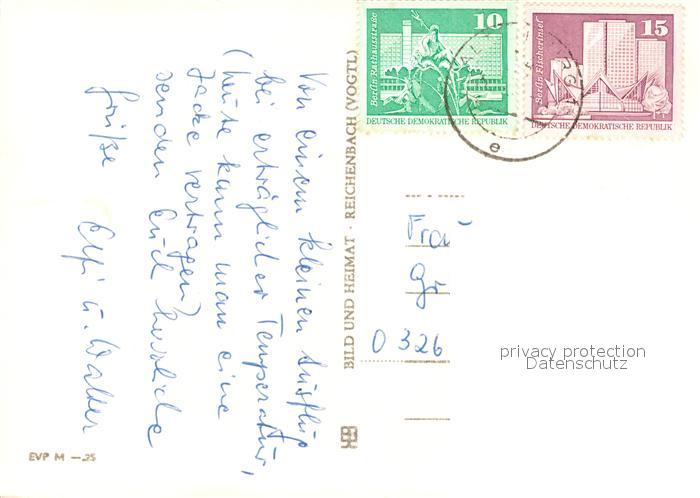 Von einem kleinen Ausflug
bei erträglicher Temperatur,
(heute kann man eine
Jacke vertragen)
senden Euch herzliche
Grüße Elfi u. Walter
EVP M —.25
BILD UND HEIMAT · REICHENBACH (VOGTL)
10
Berlin Rathausstraße
DEUTSCHE DEMOKRATISCHE REPUBLIK
15
Berlin Fischerinsel
DEUTSCHE DEMOKRATISCHE REPUBLIK
e
Frau
Gr
0326
privacy protection
Datenschutz